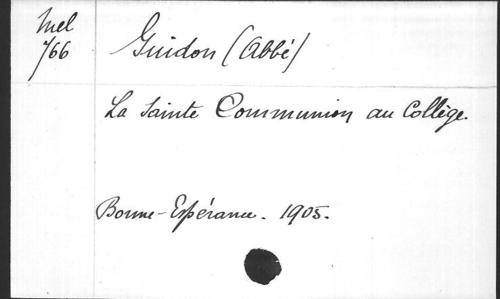 Mel
766
Guidon (Abbé)
La Sainte Communion au Collège.
Bonne-Espérance. 1905.